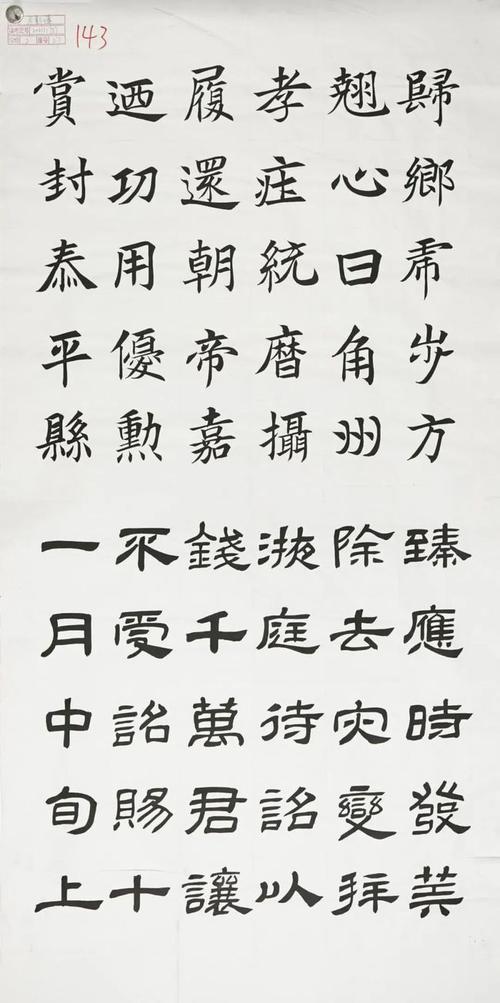 歸鄉虎步方
翹心日角州
孝莊統曆攝
履還朝帝嘉
迺功用優勳
賞封泰平縣
臻應時發算
除去灾變拜
液庭待詔以
錢千萬君讓
不受詔賜十
一月中旬上
143